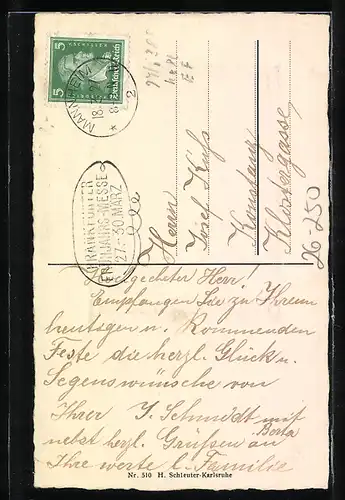 SCHILLER
5
5
Deutsches Reich
MANNHEIM
2
FRANKFURTER
FRÜHJAHRS-MESSE
27.-30. MÄRZ
Herrn
Josef
Konstanz
Klostergasse
26-250
Herr!
Empfangen Sie zu Ihrem
heutigen u. kommenden
Feste die herzl. Glück u.
Segenswünsche von
Ihrer J. Schmidt mit
Berta
nebst herzl. Grüßen an
Ihre werte l. Familie
Nr. 510 H. Schleuter-Karlsruhe